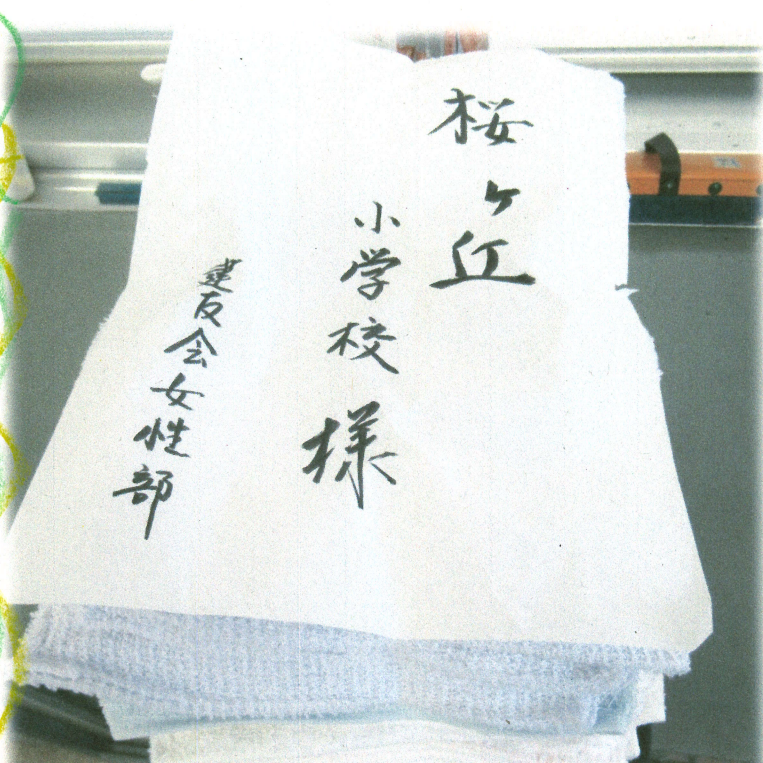 桜ヶ丘
小学校様
建友会女性部